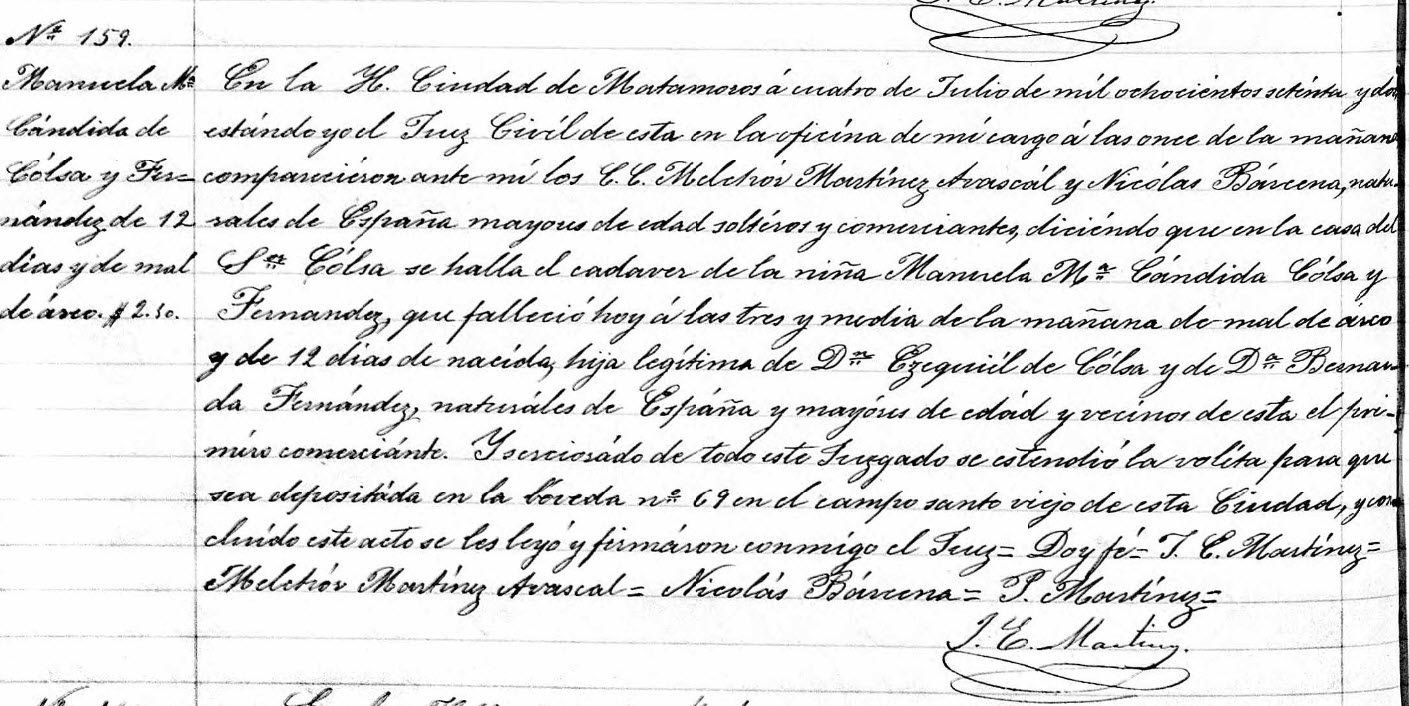 J. E. Martinez.
Nº 159.
Manuela Mª
Cándida de
Cólsa y Fer=
nández de 12
dias y de mal
de árco. $2.50.
En la H. Ciudad de Matamoros á cuatro de Julio de mil ochociéntos seténta y dos
estándo yo el Juez Civíl de esta en la oficína de mi cargo á las once de la mañana
compareciéron ante mí los C.C. Melchór Martínez Arascál y Nicólas Bárcena, natu-
rales de España mayores de edad soltéros y comerciantes, diciéndo que en la casa del
Sor. Cólsa se halla el cadaver de la niña Manuela Mª Cándida Cólsa y
Fernandez, que falleció hoy á las tres y media de la mañana de mal de árco
y de 12 días de nacída, hija legítima de Dn Ezequiél de Cólsa y de Dª Bernar-
da Fernández, naturáles de España y mayóres de edád y vecinos de esta el pri-
méro comerciánte. Y serciorádo de todo este Juzgado se estendió la voléta para que
sea depositáda en la bóveda nº 69 en el campo santo viejo de esta Ciudad, y con
cluído este acto se les leyó y firmáron conmigo el Juez= Doy fé= J. E. Martínez=
Melchór Martínez Arascal= Nicolás Bárcena= P. Martínez=
J. E. Martinez.